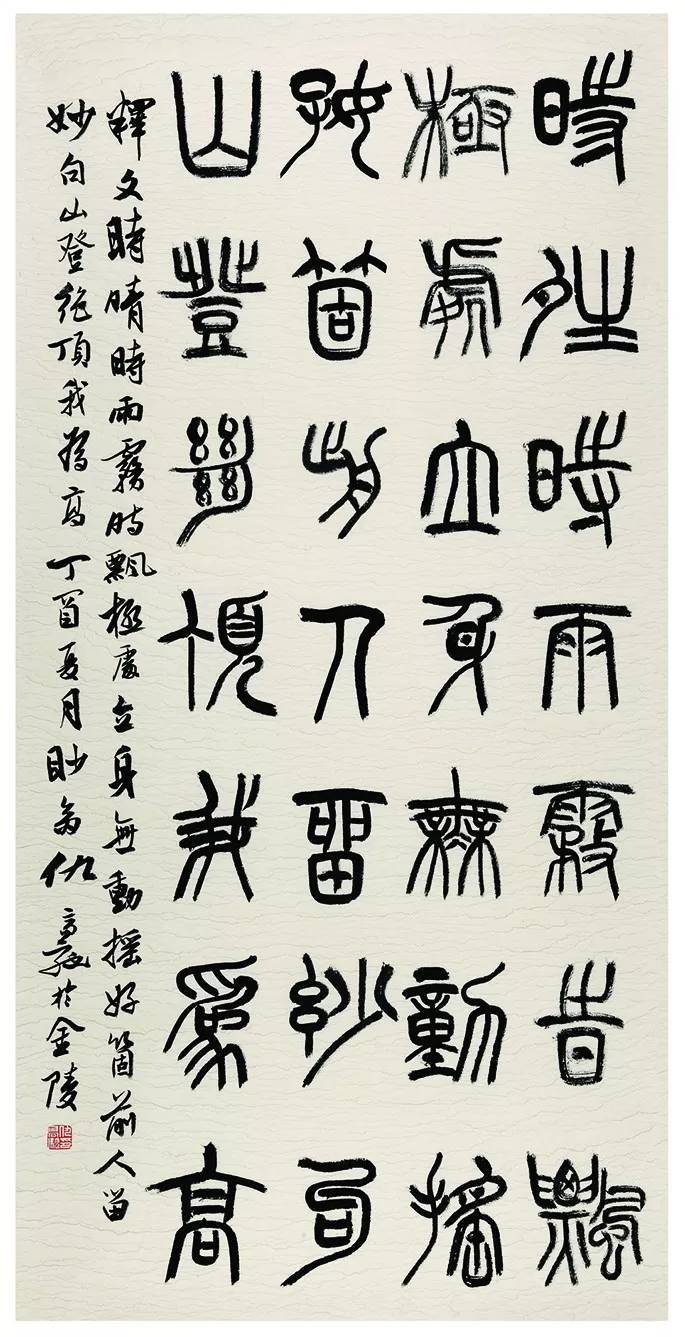 時夝時雨霧旹飄
極處立身無動搖
好箇前人留妙句
山登絕頂我為高
釋文時晴時雨霧時飄極處立身無動搖好箇前人留
妙句山登絕頂我為高丁酉夏月眇翁仇高馳於金陵